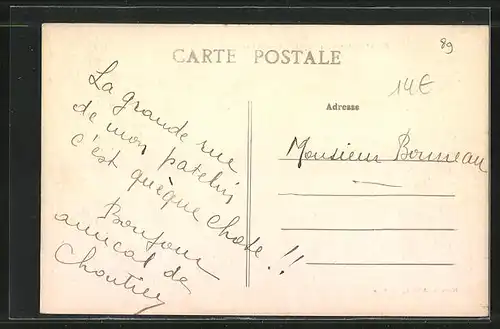 89
CARTE POSTALE
14€
Adresse
La grande rue
de mon patelin
c'est quèque chose !!
Bonjour
amical de
Monsieur